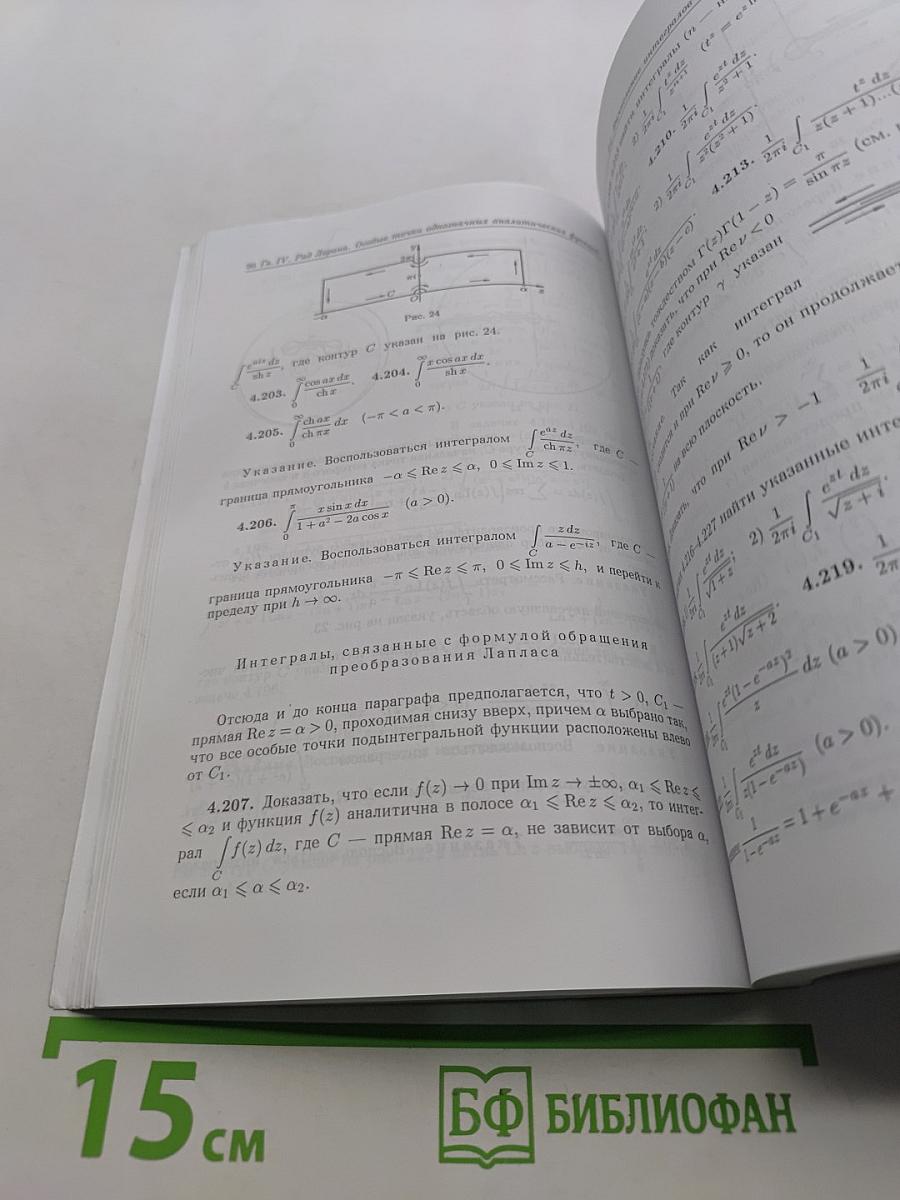 Гл. IV. Ряд Лорана. Особые точки однозначных аналитических
Рис. 24
∫_C e^{aiz} dz / sh z, где контур C указан на рис. 24.
4.203. ∫_0^∞ cos ax dx / ch x. 4.204. ∫_0^∞ x cos ax dx / sh x.
4.205. ∫_0^∞ ch ax / ch πx dx (−π < a < π).
Указание. Воспользоваться интегралом ∫_C e^{az} dz / ch πz, где C —
граница прямоугольника −α ⩽ Re z ⩽ α, 0 ⩽ Im z ⩽ 1.
4.206. ∫_0^π x sin x dx / (1 + a² − 2a cos x) (a > 0).
Указание. Воспользоваться интегралом ∫_C z dz / (a − e^{−iz}), где C —
граница прямоугольника −π ⩽ Re z ⩽ π, 0 ⩽ Im z ⩽ h, и перейти к
пределу при h → ∞.
Интегралы, связанные с формулой обращения
преобразования Лапласа
Отсюда и до конца параграфа предполагается, что t > 0, C₁ —
прямая Re z = α > 0, проходимая снизу вверх, причем α выбрано так,
что все особые точки подынтегральной функции расположены влево
от C₁.
4.207. Доказать, что если f(z) → 0 при Im z → ±∞, α₁ ⩽ Re z ⩽
⩽ α₂ и функция f(z) аналитична в полосе α₁ ⩽ Re z ⩽ α₂, то интег-
рал ∫_C f(z) dz, где C — прямая Re z = α, не зависит от выбора α,
если α₁ ⩽ α ⩽ α₂.
интегралы (n —
2) 1/2πi ∫_{C₁} t^z dz / z^{n+1} (t^z = e^z
4.210. 1/2πi ∫_{C₁} e^{zt} dz / z² + 1.
2) 1/2πi ∫_{C₁} e^{zt} dz / z²(z² + 1).
4.213. 1/2πi ∫_{C₁} t^z dz / z(z + 1)...(
тождеством Γ(z)Γ(1 − z) = π / sin πz (см.
показать, что при Re ν < 0
где контур γ указан
Так как интеграл
и при Re ν ⩾ 0, то он продолжает
на всю плоскость.
что при Re ν > −1 1/2πi
4.216–4.227 найти указанные инте
∫ e^{zt} dz / √(1 + z); 2) 1/2πi ∫_{C₁} e^{zt} dz / √(z + i).
∫ e^{zt} dz / (z+1)√(z + 2). 4.219. 1/2π
∫ e^{zt}(1 − e^{−az})² / z dz (a > 0)
∫ e^{zt} dz / z(1 − e^{−az}) (a > 0).
1 / 1−e^{−az} = 1 + e^{−az} +
15 см
БФ БИБЛИОФАН